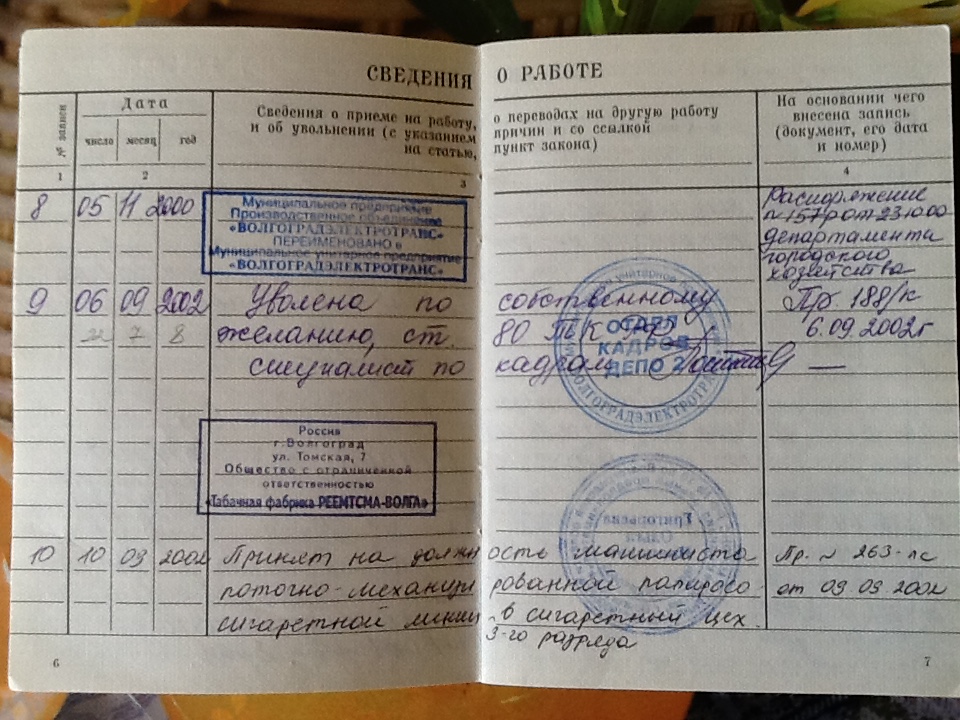 СВЕДЕНИЯ О РАБОТЕ
№ записи
Дата
число месяц год
Сведения о приеме на работу, о переводах на другую работу
и об увольнении (с указанием причин и со ссылкой
на статью, пункт закона)
На основании чего
внесена запись
(документ, его дата
и номер)
1 2 3 4
8 05 11 2000
Муниципальное предприятие
Производственное объединение
«ВОЛГОГРАДЭЛЕКТРОТРАНС»
ПЕРЕИМЕНОВАНО в
Муниципальное унитарное предприятие
«ВОЛГОГРАДЭЛЕКТРОТРАНС»
Распоряжение
№ 157р от 23.10.00
департамента
городского
хозяйства
9 06 09 2002 Уволена по собственному Пр. 188/к
22 7 8 желанию, ст. 80 ТК РФ 6.09.2002г
специалист по кадрам
ОТДЕЛ
КАДРОВ
ДЕПО 2
ВОЛГОГРАДЭЛЕКТРОТРАНС
Россия
г. Волгоград
ул. Томская, 7
Общество с ограниченной
ответственностью
«Табачная фабрика РЕЕМТСМА-ВОЛГА»
10 10 09 2002 Принят на должность машиниста Пр. № 263-лс
поточно-механизированной папиросо- от 09 09 2002
сигаретной линии в сигаретный цех
3-го разряда
6
7